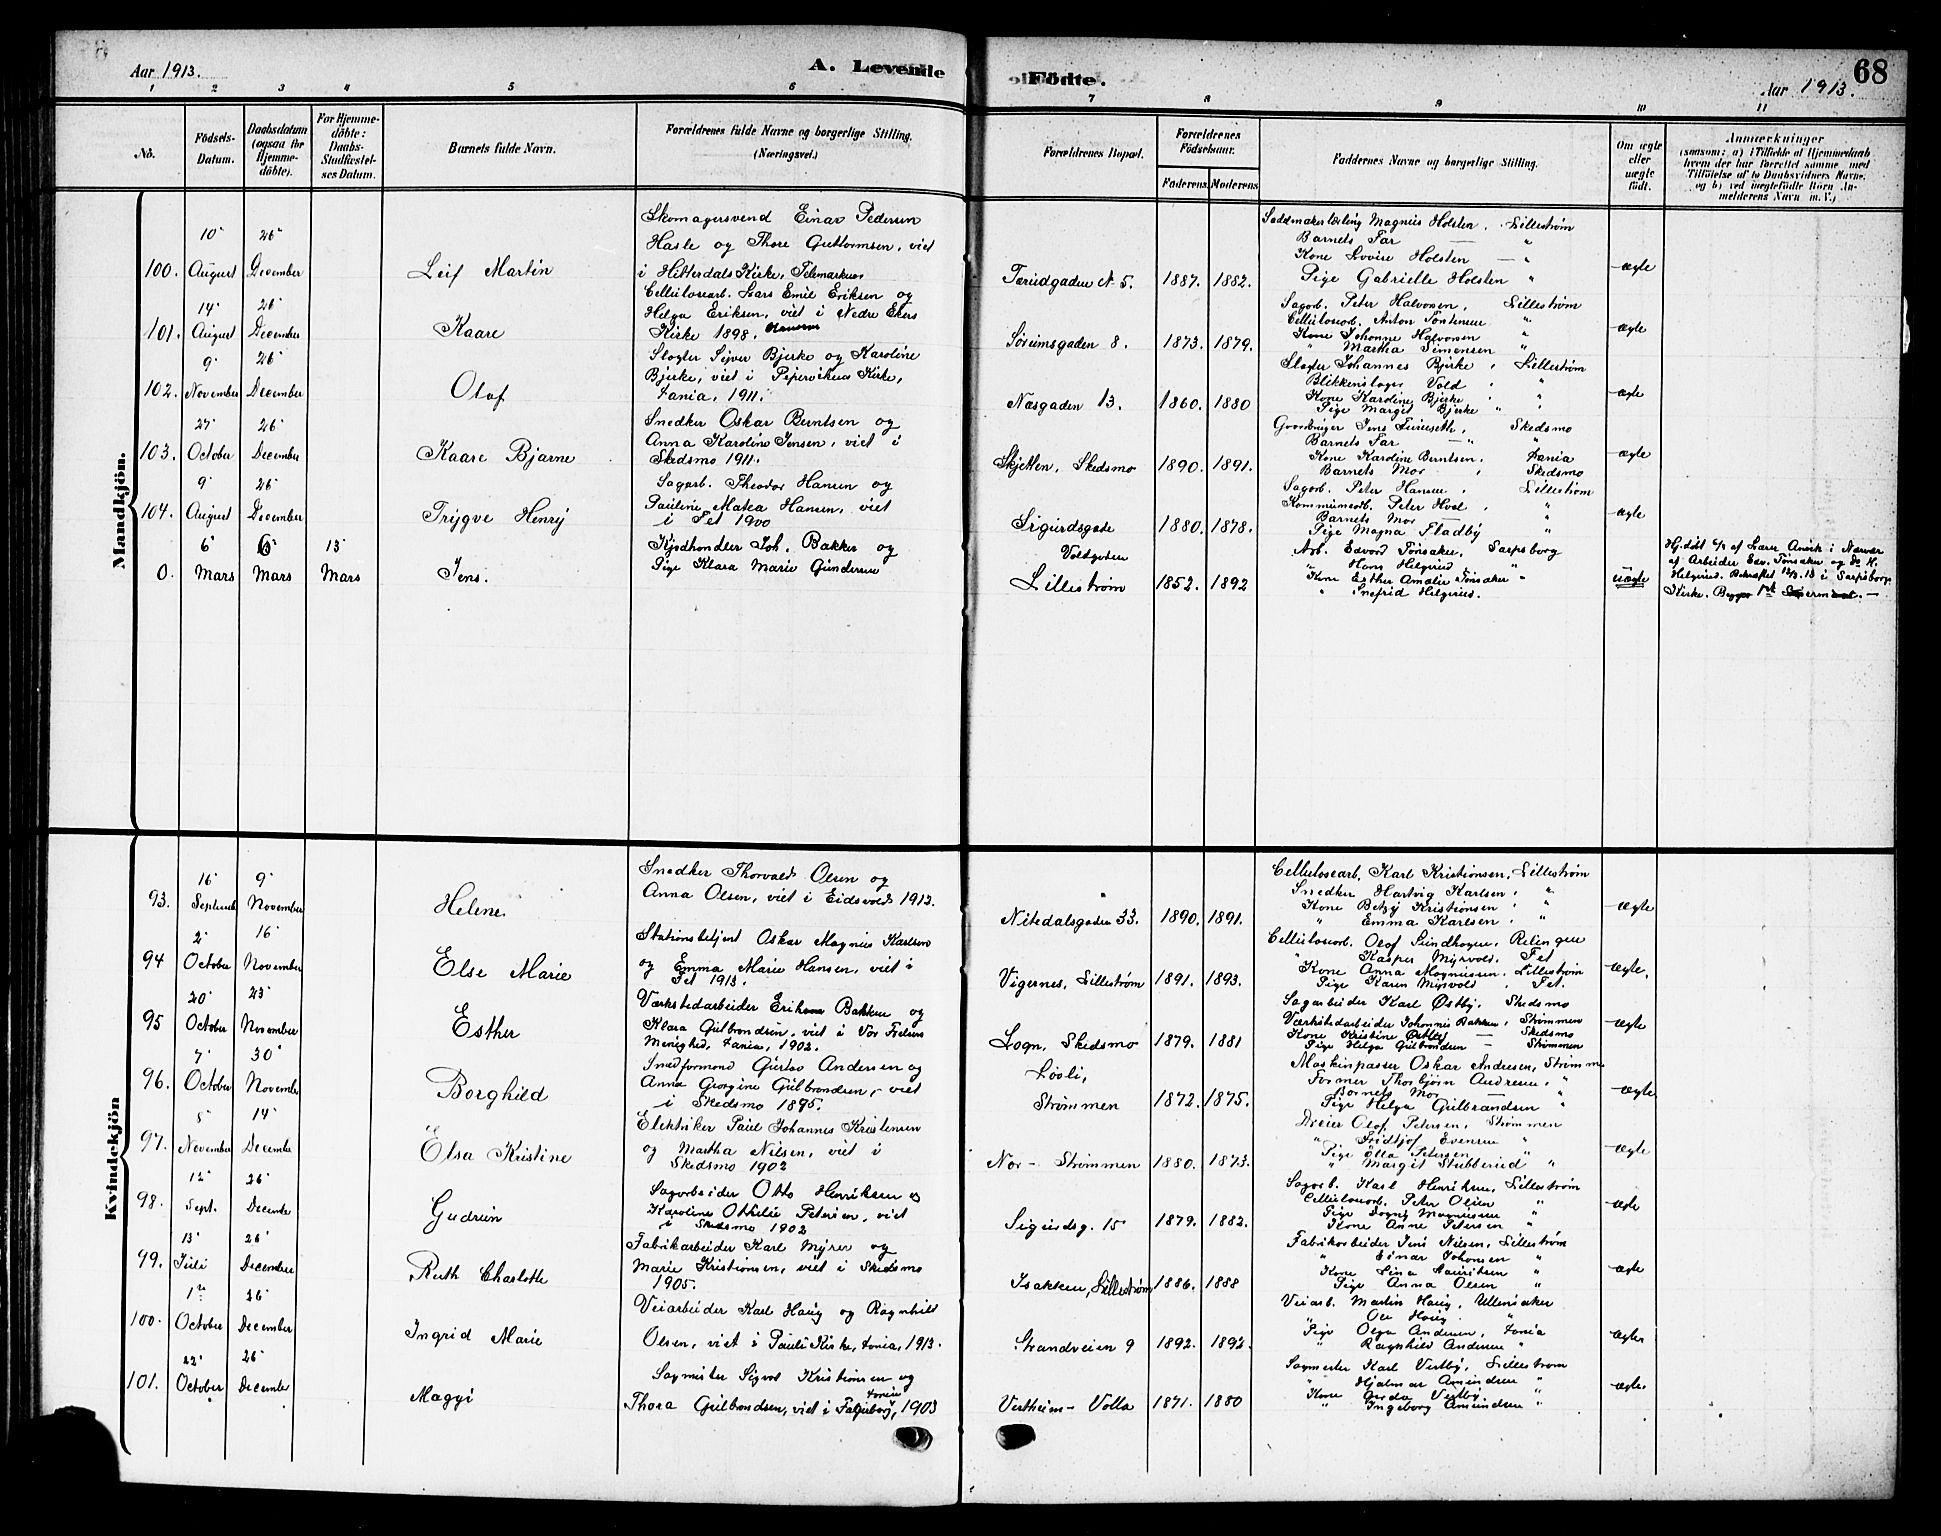 Aar 1913.
A. Levende
Födte.
68
Aar 1913.
1 2 3 4 5 6 7 8 9 10 11
No.
Födsels-
Datum.
Daabsdatum
(ogsaa for
Hjemme-
döbte).
For Hjemme-
döbte:
Daabs-
Stadfæstel-
ses Datum.
Barnets fulde Navn.
Forældrenes fulde Navne og borgerlige Stilling.
(Næringsvei.)
Forældrenes Bopæl.
Forældrenes
Födselsaar.
Faderens. Moderens
Faddernes Navne og borgerlige Stilling.
Om ægte
eller
uægte
födt.
Anmærkninger
(saasom: a) i Tilfælde af Hjemmedaab
hvem der har forrettet samme med
Tilföielse af to Daabsvidners Navne,
og b) ved uægtefödte Börn An-
melderens Navn m. V.)
Mandkjön.
100.
10
August
26
December
Leif Martin
Skomagersvend Einar Pedersen
Hasle og Thore Guttormsen, viet
i Hitterdals Kirke, Telemarken
1887. 1882.
Magnus Holsten, Lillestrøm
Barnets Far — "
Kone Lovise Holsten — "
Pige Gabrielle Holsten "
ægte
101.
14
August
26
December
Kaare
Cellulosearb. Lars Emil Eriksen og
Helga Eriksen, viet i Nedre Ekers
Kirke 1898.
Sørumsgaden 8.
1873. 1879.
Sagarb. Peter Halvorsen, Lillestrøm
Cellulosearb. Anton "
Kone Johanne Halvorsen "
" Martha Simensen "
ægte
102.
9
November
26
December
Olaf
Slagter Sijver Bjerke og Karoline
Bjerke, viet i Pipervikens Kirke,
Xania, 1911.
Næsgaden 13.
1860. 1880
Slagter Johannes Bjerke, Lillestrøm
Blikkenslager Vold "
Kone Karoline Bjerke "
Pige Margit Bjerke "
ægte
103.
27
October
26
December
Kaare Bjarne
Snedker Oskar Berntsen og
Anna Karoline Jensen, viet i
Skedsmo 1911.
Skjetten, Skedsmo
1890. 1891.
Gaardbruger Jens Skedsmo
Barnets Far — "
Kone Karoline Berntsen, Xania
Barnets Mor Skedsmo
ægte
104.
9
August
26
December
Trygve Henry
Sagarb. Theodor Hansen og
Pauline Matea Hansen, viet
i Fet 1900
Sigurdsgade
1880. 1878.
Sagarb. Peter Hansen, Lillestrøm
Kommunearb. Peter Hval, "
Barnets Mor — "
Pige Magna Fladby "
ægte
0.
6
Mars
6
Mars
13
Mars
Jens.
Kjødhandler Joh. Bakker og
Pige Klara Marie Gundersen
Voldgaden
Lillestrøm
1852. 1892
Arb. Edvard Tønsaker, Sarpsborg
" Hans Helgerud "
" Kone Esther Amalie Tønsaker "
" Snefrid Helgerud.
uægte
Hj. døbt 6/3 af Lærer
af Arbeider Edv. Tønsaker og
Helgerud. Bekræftet 13/3 13 i Sarpsborg
Kirke.
Kvindekjön
93.
16
Septemb
9
November
Helene.
Snedker Thorvald Olsen og
Anna Olsen, viet i Eidsvold 1912.
Nitedalsgaden 33.
1890. 1891.
Cellulosearb. Karl Kristiansen, Lillestrøm
Snedker Hartvig Karlsen, "
Kone Betzy Kristiansen, "
" Emma Karlsen, "
ægte
94
2
October
16
November
Else Marie
Stationsbetjent Oskar Magnus Karlsen
og Emma Marie Hansen, viet i
Fet 1913.
Vigernes, Lillestrøm
1891. 1893.
Cellulosearb. Olaf Sundhagen, Relingen
" Kasper Myrvold, Fet
Kone Anna Magnussen, Lillestrøm
Pige Karen Myrvold, Fet.
ægte,
95
20
October
23
November
Esther
Værkstedarbeider Bakken og
Klara Gulbrandsen, viet i Vor Frelsers
Menighed, Xania, 1902.
Sogn, Skedsmo
1879. 1881
Sagarbeider Karl Østby, Skedsmo
Værkstedarbeider Johannes Bakken, Strømmen
Kone Kristine — Skedsmo
Pige Helga Gulbrandsen — Strømmen
ægte
96.
7
October
30
November
Borghild
Snedformand Gustav Andersen og
Anna Georgine Gulbrandsen, viet
i Skedsmo 1895.
Løsli,
Strømmen
1872. 1875.
Maskinpasser Oskar Andresen, Strømmen
Former Thorbjørn Andresen, "
Barnets Mor — "
Pige Helga Gulbrandsen "
ægte
97.
5
November
14
December
Elsa Kristine
Elektriker Paul Johannes Kristensen
og Martha Nilsen, viet i
Skedsmo 1902
Nor- Strømmen
1880. 1873.
Dreier Olaf Petersen, Strømmen
" Fridtjof Evensen "
Pige Olla Petersen "
" Margit Stubberud "
ægte
98.
12
Sept.
26
December
Gudrun
Sagarbeider Otto Henriksen og
Karoline Othilie Petersen, viet
i Skedsmo 1902
Sigurdsg. 15
1879. 1882.
Sagarb. Karl Henriksen, Lillestrøm
Cellulosearb. Peter Olsen "
Pige Dagny Magnussen "
Kone Anne Petersen "
ægte
99.
13
Juli
26
December
Ruth Charlotte
Fabrikarbeider Karl Myrer og
Marie Kristiansen, viet i Skedsmo
1905.
Isakken, Lillestrøm
1886. 1888
Fabrikarbeider Jens Nilsen, Lillestrøm
" Einar Johansen "
Kone Lina Lauritsen "
Pige Anna Olsen "
ægte
100.
1ste
October
26
December
Ingrid Marie
Veiarbeider Karl Haug og Ragnhild
Olsen, viet i Pauls Kirke, Xania, 1913.
Strandveien 9
1892. 1892.
Veiarb. Martin Haug, Ullensaker
" Ole Haug. "
Pige Olga Andersen, Xania
" Ragnhild Andersen "
ægte
101.
22
October
26
December
Magyi
Sagmester Sigval Kristiansen og
Thora Gulbrandsen, viet i Fagerborg, Xania 1903
Vertheim- Volla
1871. 1880
Sagmester Karl Vestby, Lillestrøm
" Hjalmar Amundsen "
Kone Gerda Vestby. "
" Ingeborg Amundsen "
ægte